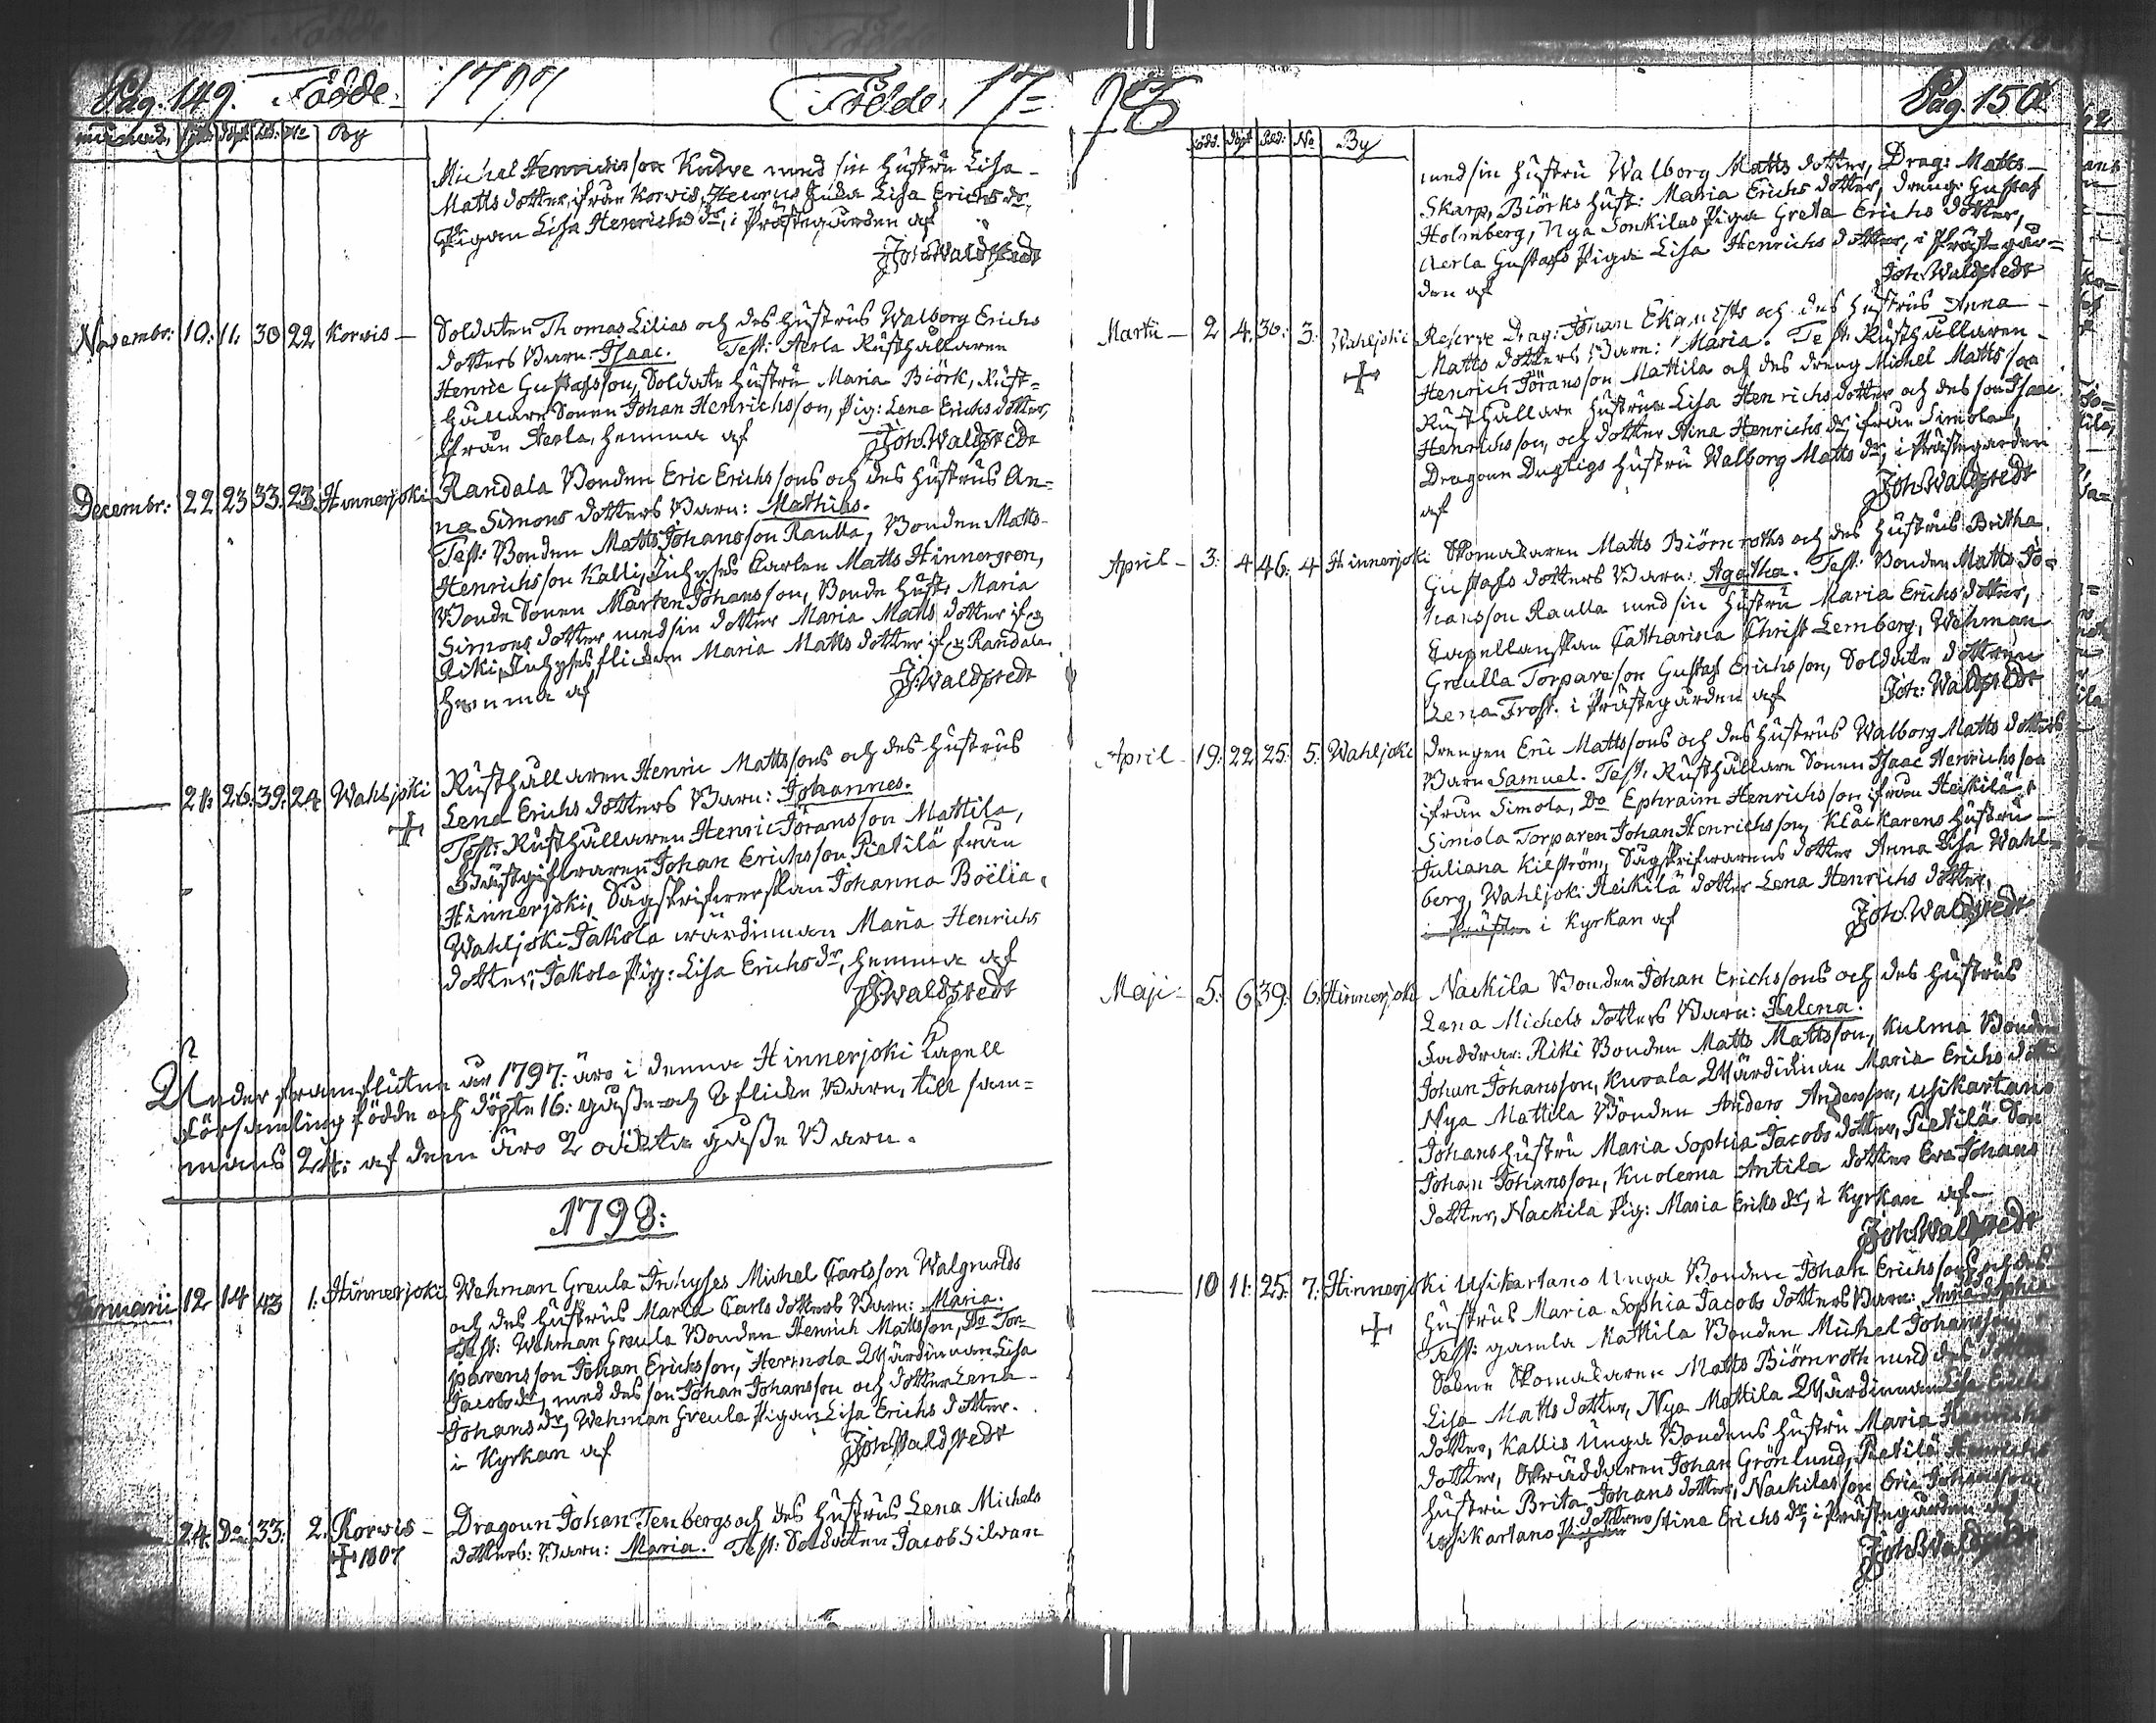 Pag. 149. Födde. 1797 Födde. 17=
månad. Född. Döpt Åld. No By
Michel Henrichsson Kadve med sin hustru Lisa
Matts dotter, ifrån Korvis, Henrics Lisa Erichs dr,
Pigan Lisa Henrichs dr, i Prästegården af
Joh: Waldstedt
Novembr: 10. 11. 30 22 Korvis — Soldaten Thomas Lilias och des hustrus Walborg Erichs
dotters Barn: Isaac. Test: Aerla Rusthållaren
Henric Gustafsson, Soldate hustru Maria Biörk, Rust=
hållare Sonen Johan Henrichsson, Pig: Lena Erichs dotter,
ifrån Aerla, hemma af Joh: Waldstedt
Decembr: 22 23 33. 23. Hinnerjoki Randala Bonden Eric Erichssons och des hustrus An=
na Simons dotters Barn: Mathias.
Test: Bonden Matts Johansson Raulla, Bonden Matts
Henrichsson Kalli, Inhyses Karlen Matts Hinnergren,
Bonde Sonen Mårten Johansson, Bonde hust: Maria
Simons dotter med sin dotter Maria Matts dotter ifrån
Riki, Inhyses flickan Maria Matts dotter ifrån Randala
hemma af J: Waldstedt
— 21. 26. 39. 24 Wahljoki Rusthållaren Henric Mattssons och des hustrus
Lena Erichs dotters Barn: Johannes.
Test: Rusthållaren Henric Göransson Mattila,
Gästgifwaren Johan Erichsson Pietilä från
Hinnerjoki, Sagskrifwerskan Johanna Boëlia,
Wahljoki Jakola wärdinnan Maria Henrichs
dotter, Jakola Pig: Lisa Erichs dr, hemma af
J: Waldstedt
Under framflutne år 1797: äro i denna Hinnerjoki Capell
Församling födde och döpte 16: gåsse och 8 flicke Barn, till sam=
mans 24: af dem äro 2 oäkta gåsse Barn.
1798:
Januarii 12 14 43 1. Hinnerjoki Wehman Greula Inhyses Michel Carlsson Walgrunds
och des hustrus Maria Carls dotters Barn: Maria.
Test: Wehman Greula Bonden Henrich Mattsson, Do Tor=
parensson Johan Erichsson, Hermola Wärdinnan Lisa
Jacobs dr, med des son Johan Johansson och dotter Lena
Johans dr, Wehman Greula Pigan Lisa Erichs dotter.
i Kyrkan af Joh: Waldstedt
24. Do 33: 2. Korvis — Dragoun Johan Tenbergs och des hustrus Lena Michels
+ 1807 dotters: Barn: Maria. Test: Soldaten Jacob Silvan
98 Pag. 150
Född. Döpt Åld: No By
med sin hustru Walborg Matts dotter, Drag: Matts
Skarp, Biörks hust: Maria Erichs dotter, dräng: Gustaf
Holmberg, Nya Sonkilas Piga Greta Erichs dotter,
Aerla Gustafs Piga Lisa Henrichs dotter, i Prästegår=
den af Joh: Waldstedt
Martii — 2 4. 30: 3. Wahljoki Reserve Drag: Johan Ekqvists och des hustrus Anna
Matts dotters Barn: Maria. Test: Rusthållaren
Henrich Göransson Mattila och des dreng Michel Mattsson
Rusthållare hustrun Lisa Henrichs dotter och des son Isaac
Henrichsson, och dotter Stina Henrichs dr ifrån Simola,
Dragoun Dugtigs hustru Walborg Matts dr, i Prästegården
af Joh: Waldstedt
April — 3: 4 46: 4 Hinnerjoki Skomakaren Matts Biörnroths och des hustrus Britha
Gustafs dotters Barn: Agatha. Test: Bonden Matts Jo=
hansson Raulla med sin hustru Maria Erichs dotter,
Capellanskan Catharina Christ: Lemberg, Wehman
Greulla Torpare son Gustaf Erichsson, Soldate dottren
Lena Frost. i Prästegården af Joh: Waldstedt
April — 19. 22 25: 5. Wahljoki drengen Eric Mattssons och des hustrus Walborg Matts dotters
Barn Samuel. Test. Rusthållare Sonen Isaac Henrichsson
ifrån Simola, Do Ephraim Henrichsson ifrån Heikilä,
Simola Torparen Johan Henrichsson, Klåckarens hustru
Juliana Kilström, Sågskrifwarens dotter Anna Lisa Wahl=
berg, Wahljoki Heikilä dotter Lena Henrichs dotter,
i Kyrkan af Joh: Waldstedt
Maji — 5: 6 39: 6. Hinnerjoki Nackila Bonden Johan Erichssons och des hustrus
Lena Michels dotters Barn: Helena.
Faddrar: Riki Bonden Matts Mattsson, Kulma Bonden
Johan Johansson, Kuvala Wärdinnan Maria Erichs dotter
Nya Mattila Bonden Anders Andersson, Usikartano
Johans hustru Maria Sophia Jacobs dotter, Pietilä Son
Johan Johansson, Kuolema Antila dotter Eva Johans
dotter, Nackila Pig: Maria Eriks dr, i Kyrkan af
Joh: Waldstedt
— 10 11. 25: 7. Hinnerjoki Usikartano Unga Bonden Johan Erichssons och des
hustrus Maria Sophia Jacobs dotters Barn: Anna Sophia
Test: gamla Mattila Bonden Michel Johansson
Skomakaren Matts Biörnroth med des dotter
Lisa Matts dotter, Nya Mattila Wärdinnan Lisa
dotter, Kallis Unga Bondens hustru Maria Henrichs
dotter, Skräddaren Johan Grönlund, Pietilä
hustru Brita Johans dotter, Nackilas son Eric Johansson,
Usikartano dottren Stina Erichs dr, i Prästegården af
Joh: Waldstedt